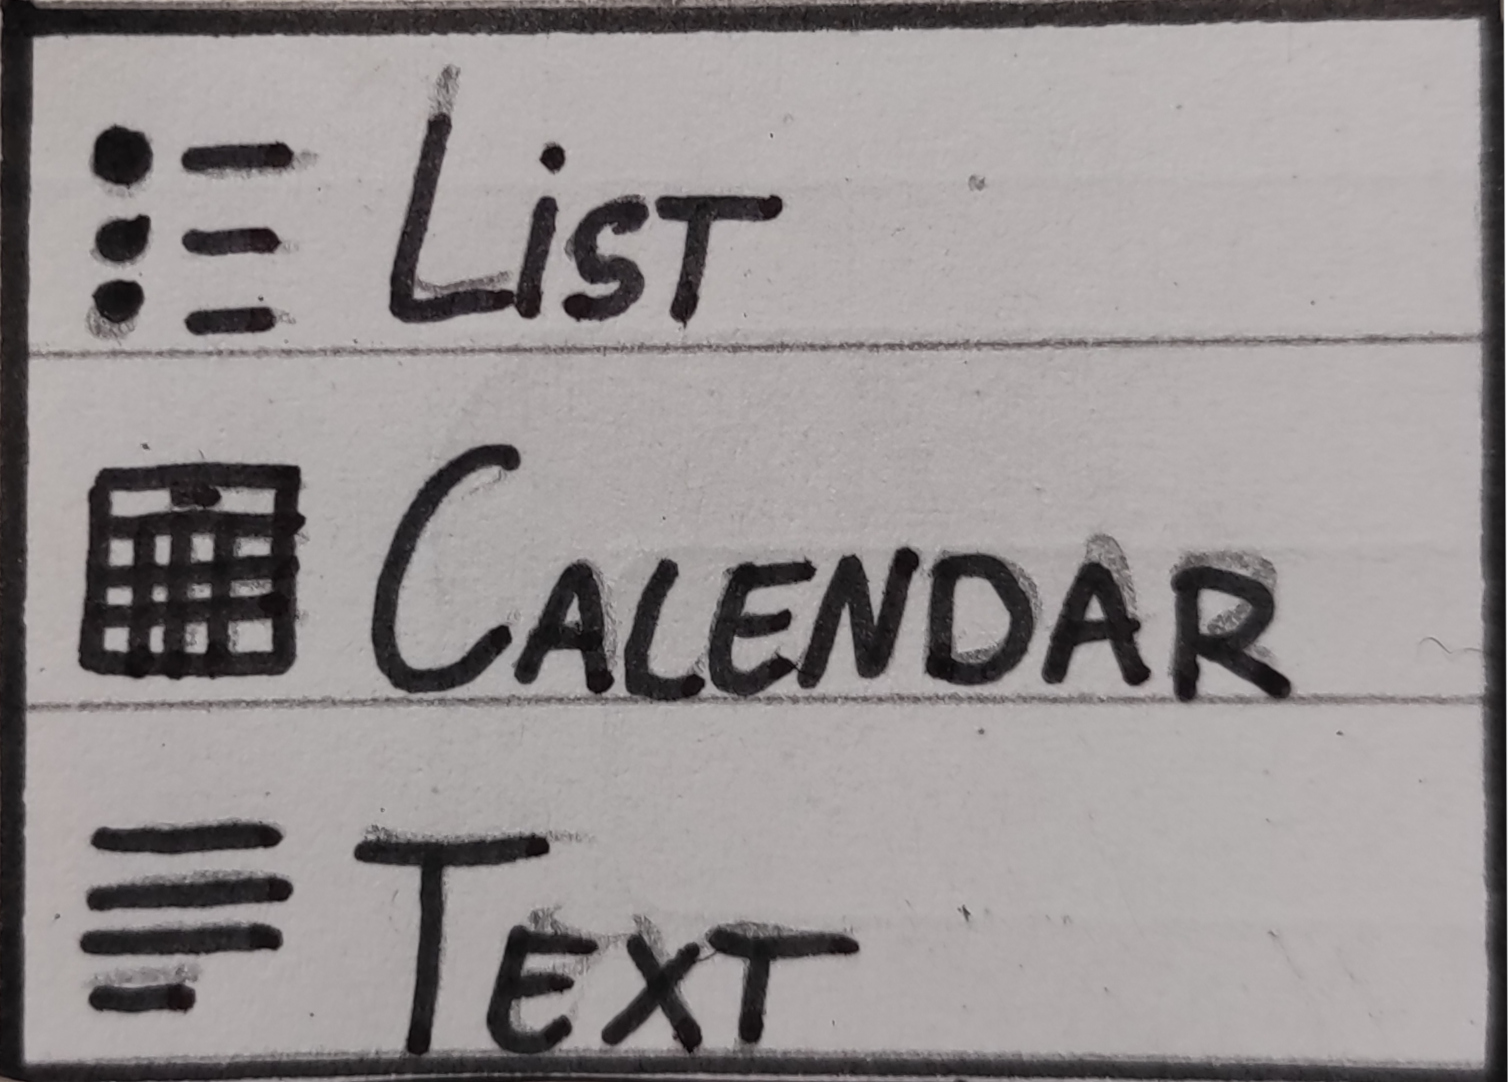 List
Calendar
Text